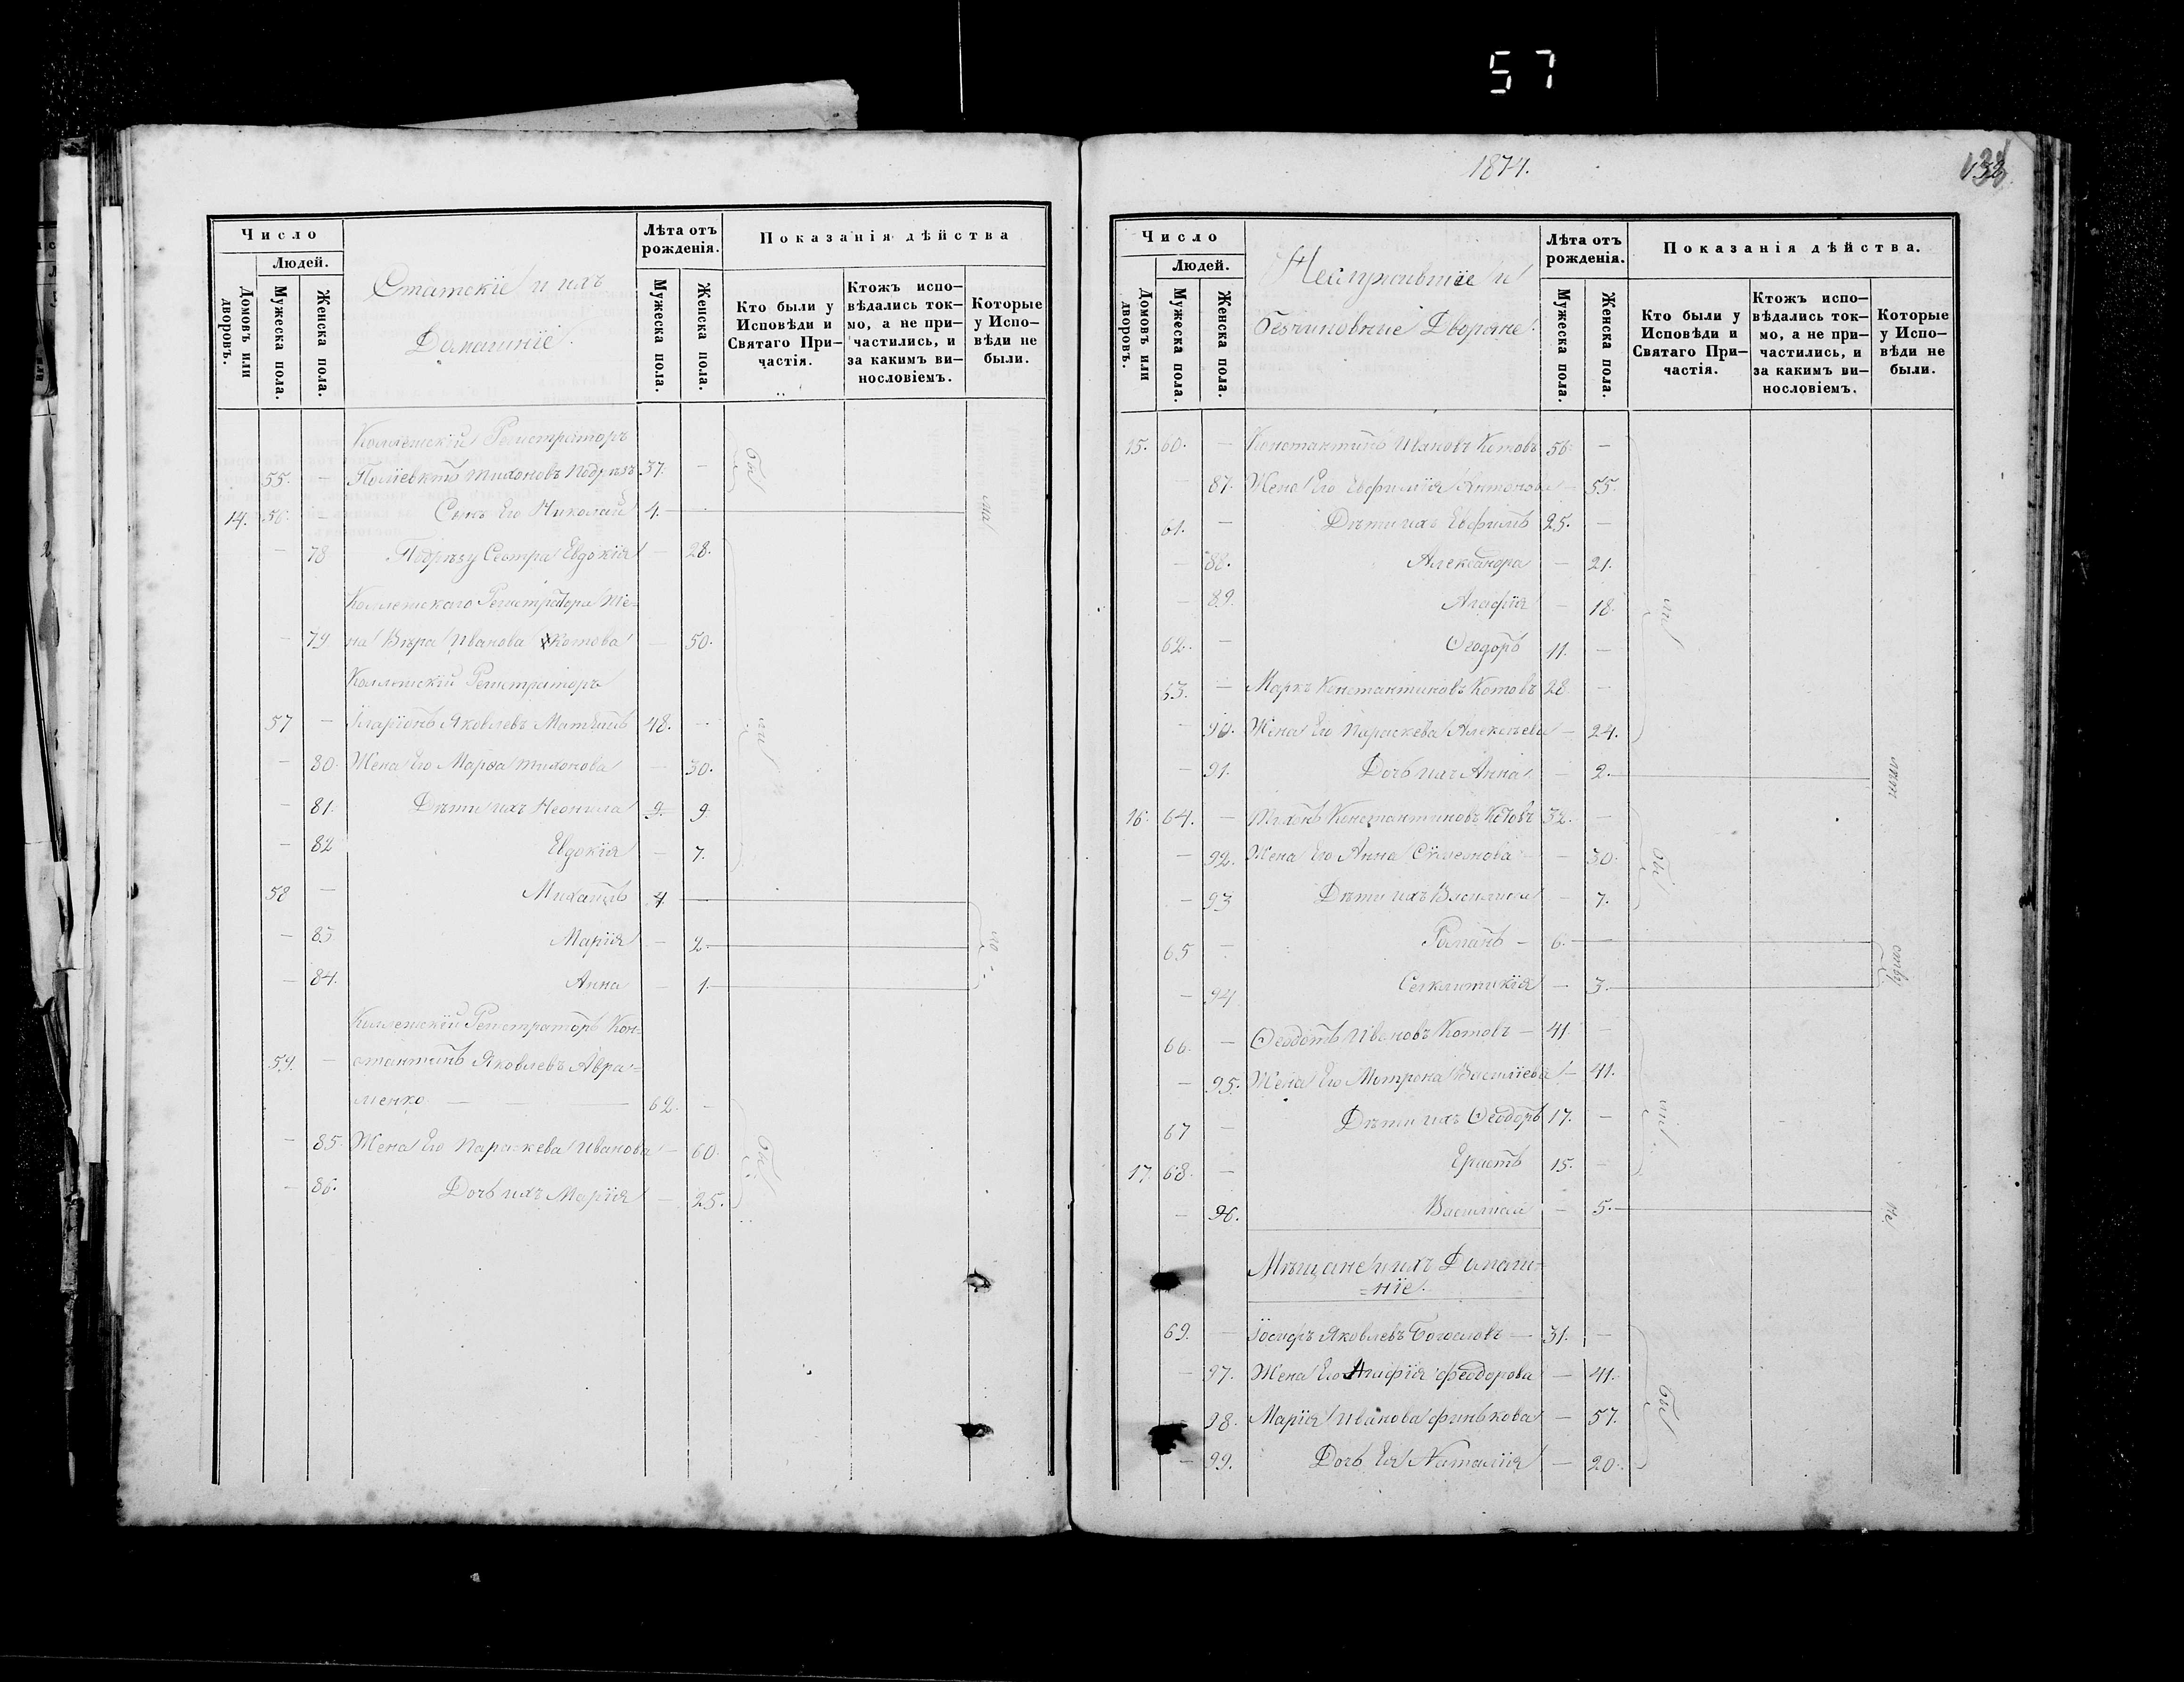 57
1874.
132
Число
Людей.
Домовъ или дворовъ.
Мужеска пола.
Женска пола.
Статскіе и ихъ
Домашніе.
Лѣта отъ рожденія.
Мужеска пола.
Женска пола.
Показанія дѣйства
Кто были у Исповѣди и Святаго При-
частія.
Ктожъ испо-
вѣдались ток-
мо, а не при-
частились, и
за какимъ ви-
нословіемъ.
Которые
у Испо-
вѣди не
были.
Коллежскій Регистраторъ
55. — Тихоновъ 37. —
14. 56. — Сынъ Его Николай 4.
— 78 Сестра Евдокія — 28.
Коллежскаго Регистратора Же-
— 79 на Вѣра Иванова Котова — 50.
Коллежскій Регистраторъ
57 — Иларіонъ Яковлевъ 48. —
— 80 Жена Его Марѳа Тихонова — 30.
— 81. Дѣти ихъ Неонила 9. 9
— 82 Евдокія — 7.
58 — Михаилъ 4.
— 83 Марія — 2.
— 84. Анна — 1.
Коллежскій Регистраторъ Кон-
59. — стантинъ Яковлевъ Авра-
менко — — — 62. —
— 85. Жена Его Параскева Иванова — 60.
— 86. Дочь ихъ Марія — 25.
Число
Людей.
Домовъ или дворовъ.
Мужеска пола.
Женска пола.
Неслужившіе и
безчиновные Дворяне.
Лѣта отъ рожденія.
Мужеска пола.
Женска пола.
Показанія дѣйства.
Кто были у
Исповѣди и
Святаго При-
частія.
Ктожъ испо-
вѣдались ток-
мо, а не при-
частились, и
за какимъ ви-
нословіемъ.
Которые
у Испо-
вѣди не
были.
15. 60. — Константинъ Ивановъ Котовъ 56. —
87. Жена Его Евфимія Антонова — 55.
61. — Дѣти ихъ Евфимъ 25. —
— 88. Александра — 21.
— 89. Агафія — 18.
62. — Ѳеодоръ 11. —
63. — Маркъ Константиновъ Котовъ 28 —
— 90. Жена Его Параскева Алексѣева — 24.
— 91. Дочь ихъ Анна — 2.
16. 64. — Тихонъ Константиновъ Котовъ 32. —
— 92. Жена Его Анна Симеонова — 30.
— 93 Дѣти ихъ Василиса — 7.
65 — Романъ — 6.
— 94 Сегклитикія — 3.
66. — Ѳеодотъ Ивановъ Котовъ — 41. —
— 95. Жена Его Матрона Василіева — 41.
67 — Дѣти ихъ Ѳеодоръ 17. —
17. 68. — Ерастъ 15. —
— 96. Василиса — 5.
Мѣщане и ихъ Домаш-
=ніе.
69. — Іосифъ Яковлевъ Богословъ — 31. —
— 97. Жена Его Агафія Феодорова — 41.
98. Марія Иванова Финькова — 57.
— 99. Дочь Ея Наталія — 20.